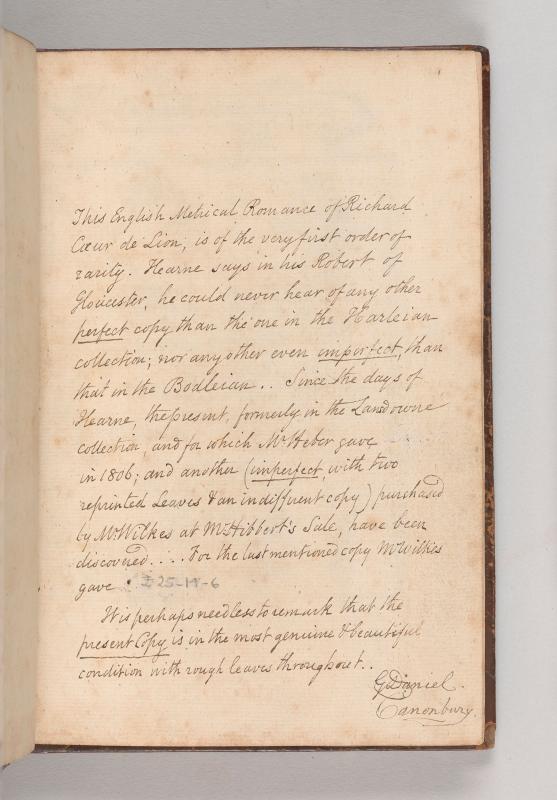 This English Metrical Romance of Richard
Cœur de Lion, is of the very first order of
rarity. Hearne says in his Robert of
Gloucester, he could never hear of any other
perfect copy than the one in the Harleian
collection; nor any other even imperfect, than
that in the Bodleian.. Since the days of
Hearne, the present, formerly in the Lansdowne
collection, and for which Mr Heber gave
in 1806; and another (imperfect, with two
reprinted Leaves & an indifferent copy) purchased
by Mr Wilkes at Mr Hibbert's Sale, have been
discovered.... For the last mentioned copy Mr Wilkes
gave
It is perhaps needless to remark that the
present Copy is in the most genuine & beautiful
condition with rough leaves throughout..
G Daniel.
Canonbury.